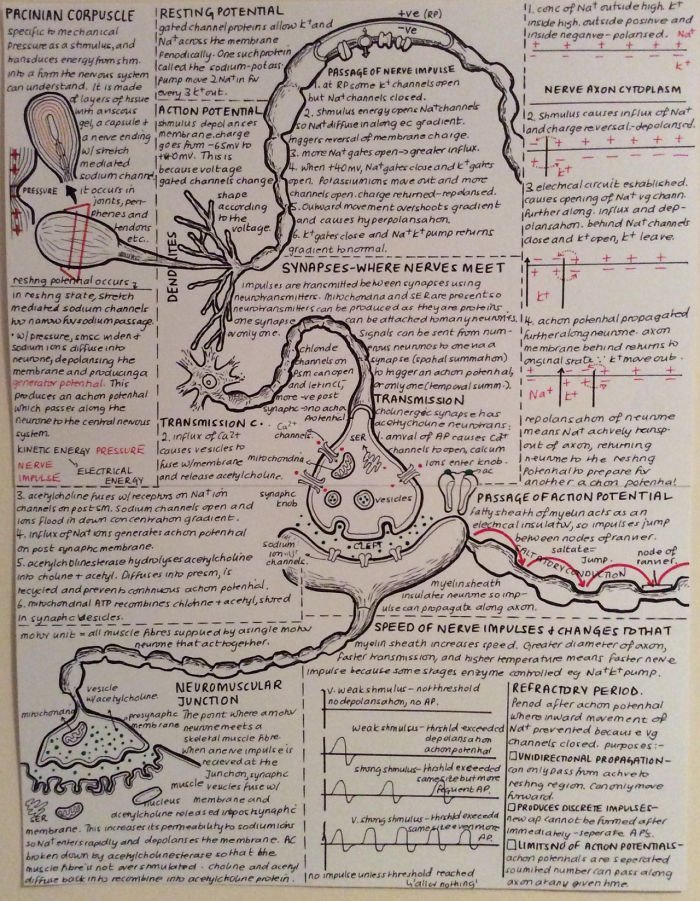 PACINIAN CORPUSCLE
specific to mechanical
pressure as a stimulus, and
transduces energy from stim.
into a form the nervous system
can understand. It is made
of layers of tissue
with a viscous
gel, a capsule +
a nerve ending
w/ stretch
mediated
sodium channel
it occurs in
joints, peri-
phenes and
tendons
etc.
PRESSURE
resting potential occurs;
in resting state, stretch
mediated sodium channels
too narrow for sodium passage.
• w/ pressure, smsc widen +
sodium ions diffuse into
neurone, depolarising the
membrane and producing a
generator potential. This
produces an action potential
which passes along the
neurone to the central nervous
system.
KINETIC ENERGY PRESSURE
NERVE
IMPULSE
ELECTRICAL
ENERGY
RESTING POTENTIAL
gated channel proteins allow K+ and
Na+ across the membrane
periodically. One such protein
called the sodium-potass.
pump move 2 Na+ in for
every 3 K+ out.
ACTION POTENTIAL
stimulus depolarises
membrane. charge
goes from -65mV to
+40mV. This is
because voltage
gated channels change
shape
according
to the
voltage.
DENDRITES
+ve (RP)
-ve
PASSAGE OF NERVE IMPULSE
1. at RP some K+ channels open
but Na+ channels closed.
2. stimulus energy opens Na+ channels
so Na+ diffuse in along ec gradient.
triggers reversal of membrane charge.
3. more Na+ gates open → greater influx.
4. when +40mV, Na+ gates close and K+ gates
open. Potassium ions move out and more
channels open. charge returned - repolarised.
5. Outward movement overshoots gradient
and causes hyperpolarisation.
6. K+ gates close and Na+ K+ pump returns
gradient to normal.
1. conc of Na+ outside high. K+
inside high. outside positive and
inside negative - polarised. Na+
K+
NERVE AXON CYTOPLASM
2. Stimulus causes influx of Na+
and charge reversal - depolarised.
3. electrical circuit established.
causes opening of Na+ vg chann.
further along. influx and dep-
olarisation. behind Na+ channels
close and K+ open, K+ leave.
K+
4. action potential propagated
further along neurone. axon
membrane behind returns to
original state ∵ K+ move out.
Na+
K+
repolarisation of neurone
means Na+ actively transp.
out of axon, returning
neurone to the resting
potential to prepare for
another action potential
SYNAPSES - WHERE NERVES MEET
impulses are transmitted between synapses using
neurotransmitters. Mitochondria and SER are present so
neurotransmitters can be produced as they are proteins.
one synapse can be attached to many neurones,
or only one. Signals can be sent from num-
erous neurones to one via a
synapse (spatial summation)
to trigger an action potential,
or only one (temporal summ.).
chloride
channels on
PSM can open
and let in Cl,
more -ve post
synaptic → no action
potential
TRANSMISSION
cholinergic synapse has
acetylcholine neurotrans:
1. arrival of AP causes Ca2+
channels to open, calcium
ions enter knob.
TRANSMISSION C..
2. influx of Ca2+
causes vesicles to
fuse w/ membrane
and release acetylcholine.
Ca2+
channels
SER
mitochondria
synaptic
knob
vesicles
CLEFT
sodium
ion
channels.
3. acetylcholine fuses w/ receptors on Na+ ion
channels on post sm. Sodium channels open and
ions flood in down concentration gradient.
4. influx of Na+ ions generates action potential
on post synaptic membrane.
5. acetylcholinesterase hydrolyses acetylcholine
into choline + acetyl. Diffuses into presm, is
recycled and prevents continuous action potential.
6. mitochondrial ATP recombines choline + acetyl, stored
in synaptic vesicles.
PASSAGE OF ACTION POTENTIAL
fatty sheath of myelin acts as an
electrical insulator, so impulses jump
between nodes of ranvier.
saltate =
jump.
node of
ranvier.
SALTATORY CONDUCTION
myelin sheath
insulates neurone so imp-
ulse can propagate along axon.
motor unit = all muscle fibres supplied by a single motor
neurone that act together.
SPEED OF NERVE IMPULSES + CHANGES TO THAT
myelin sheath increases speed. Greater diameter of axon,
faster transmission, and higher temperature means faster nerve
impulse because some stages enzyme controlled eg Na+ K+ pump.
NEUROMUSCULAR
JUNCTION
The point where a motor
neurone meets a
skeletal muscle fibre.
When a nerve impulse is
recieved at the
junction, synaptic
vesicles fuse w/
membrane and
acetylcholine released into postsynaptic
membrane. This increases its permeability to sodium ions
so Na+ enters rapidly and depolarises the membrane. AC
broken down by acetylcholinesterase so that the
muscle fibre is not over stimulated - choline and acetyl
diffuse back into recombine into acetylcholine protein.
vesicle
w/ acetylcholine.
mitochondria
presynaptic
membrane
muscle
nucleus
SER
v. weak stimulus - no threshold
no depolarisation, no AP.
weak stimulus - thrshld exceeded
depolarisation
action potential
strong stimulus - thrshld exceeded
same size but more
frequent AP.
v. strong stimulus - thrshld exceeded
same size even more
AP.
no impulse unless threshold reached
↳ 'all or nothing'
REFRACTORY PERIOD.
Period after action potential
where inward movement of
Na+ prevented because vg
channels closed. purposes:-
UNIDIRECTIONAL PROPAGATION -
can only pass from active to
resting region. Can only move
forward.
PRODUCES DISCRETE IMPULSES -
new ap cannot be formed after
immediately - seperate APs.
LIMITS NO OF ACTION POTENTIALS -
action potentials are seperated
so limited number can pass along
axon at any given time.